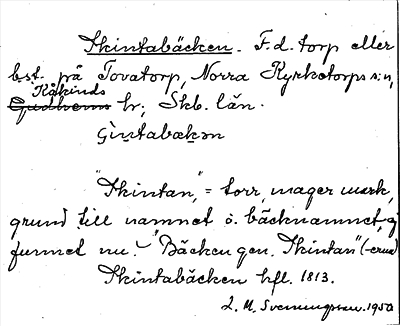 Skintabäcken. F.d. torp eller
bst. på Tovatorp, Norra Kyrketorps s:n,
Kåkinds
Gudhems hr; Skb. län.
"Skintan," = torr, mager mark,
grund till namnet o. bäcknamnet, ej
funnet nu. "Bäcken gen. Skintan" (-erna)
Skintabäcken hfl. 1813.
L. M. Svenningsson. 1950